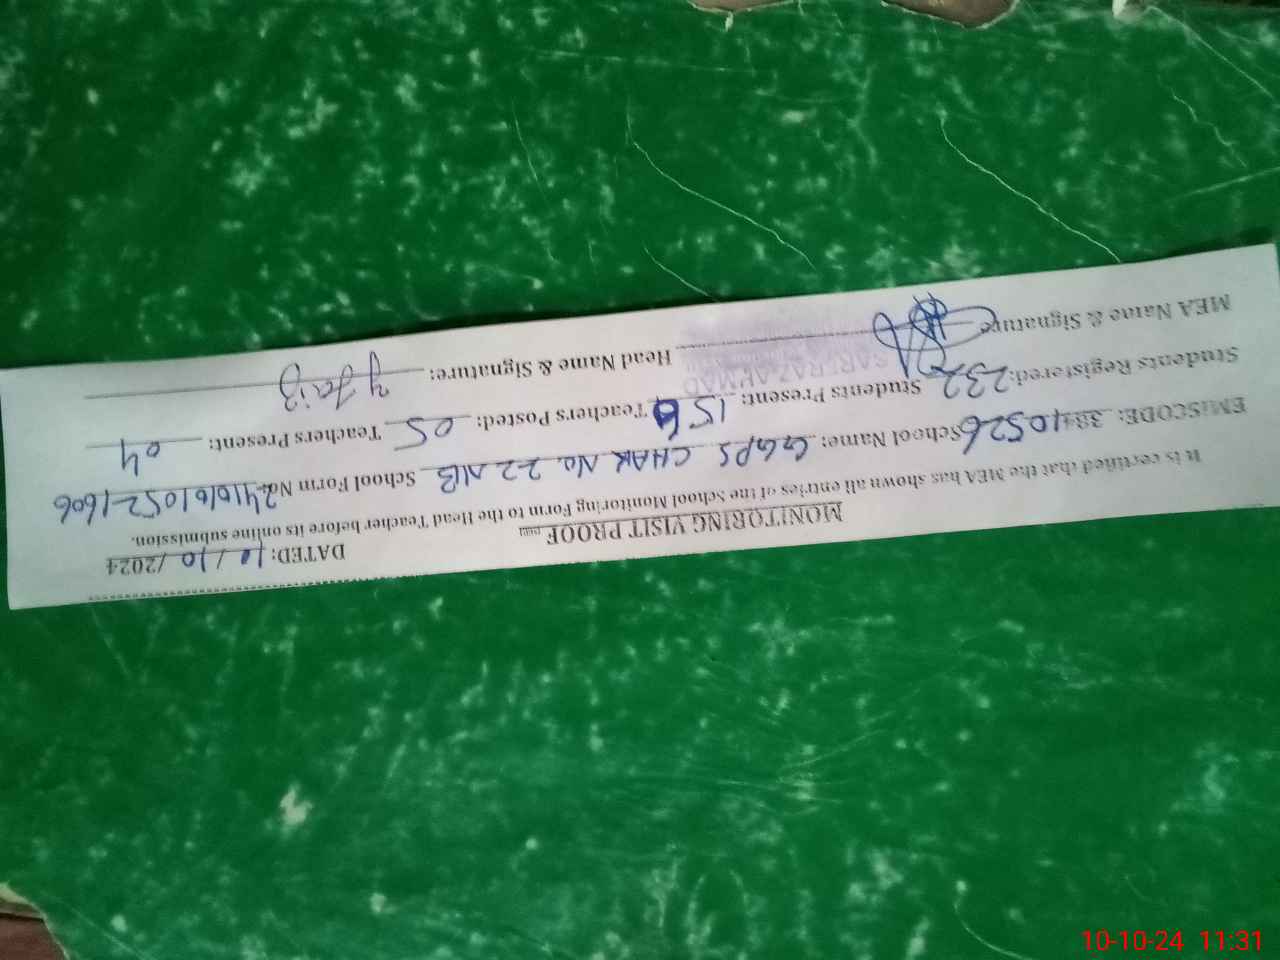 MONITORING VISIT PROOF DATED: 10 / 10 / 2024
It is certified that the MEA has shown all entries of the School Monitoring Form to the Head Teacher before its online submission.
EMISCODE: 38410526 School Name: GGPS CHAK No. 22 NB School Form No. 2410101052-1606
Students Registered: 232 Students Present: 156 Teachers Posted: 05 Teachers Present: 04
MEA Name & Signature Head Name & Signature:
SARFRAZ AHMAD
10-10-24 11:31